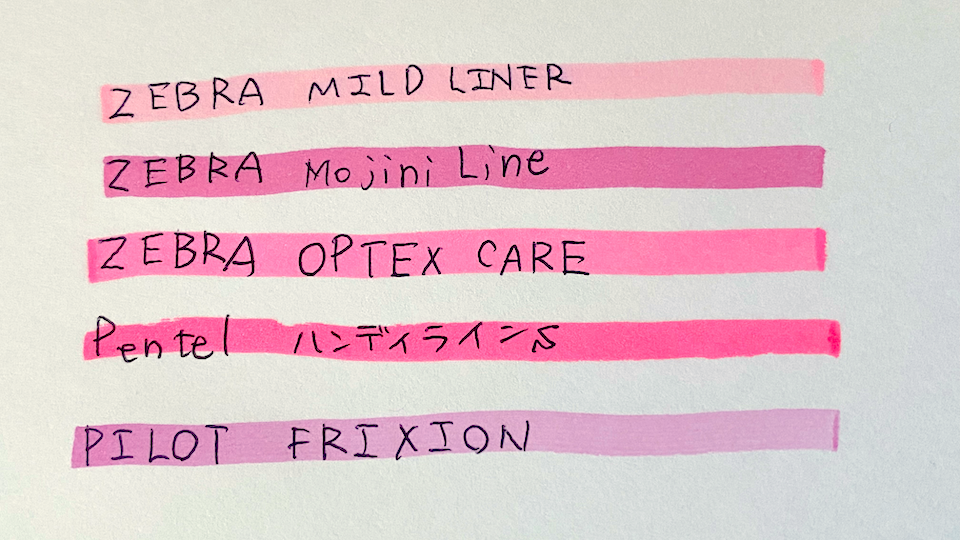 ZEBRA MILD LINER
ZEBRA Mojini Line
ZEBRA OPTEX CARE
Pentel ハンディラインS
PILOT FRIXION